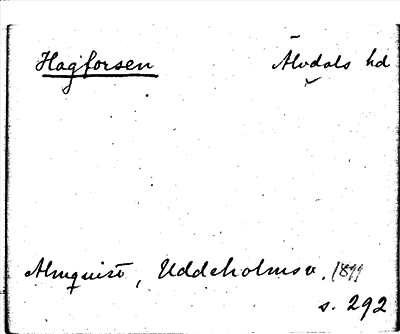 Hagforsen Älvdals hd
Almquist, Uddeholmsv. 1899
s. 292